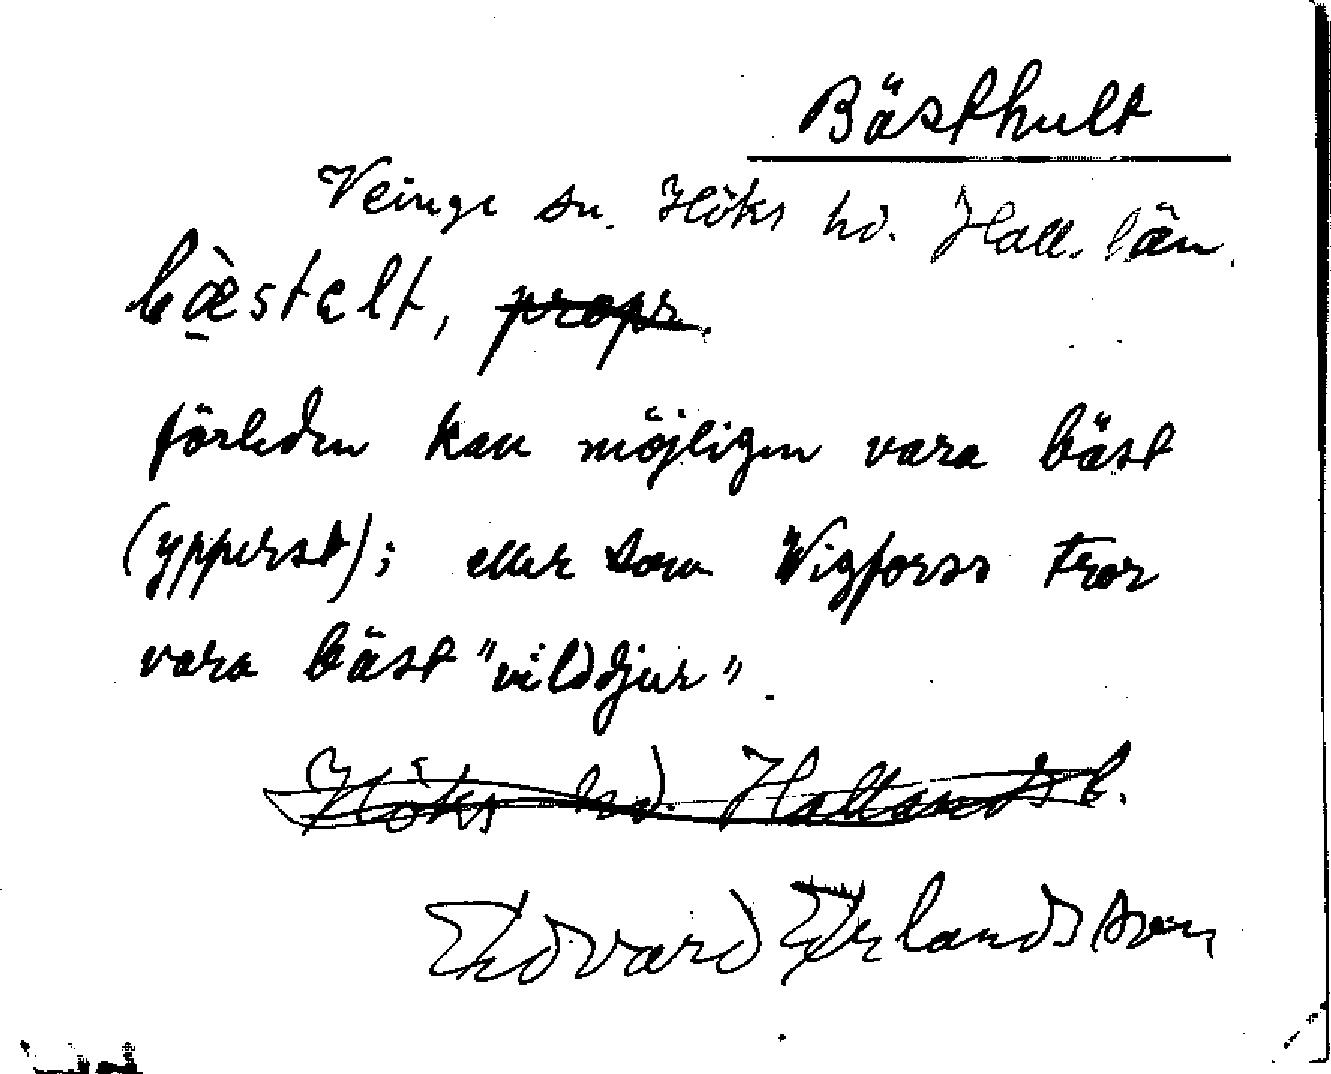 Bästhult
Veinge sn. Höks hd. Hall. län.
bæ̀stelt, propr.
förleden kan möjligen vara bäst
(ypperst); eller som Wigforss tror
vara bäst "vilddjur".
Höks hd. Hallands l.
Edvard Erlandsson